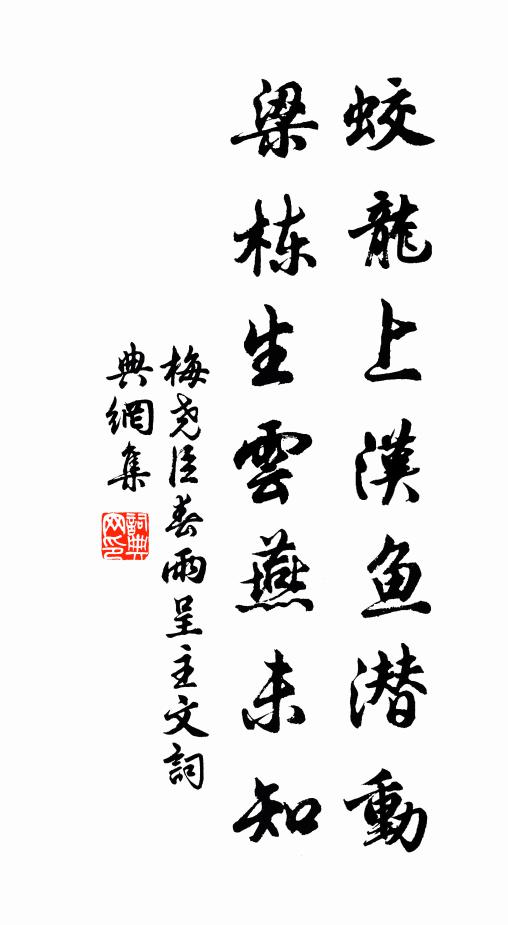 蛟龍上漢鱼潜動
梁栋生雲燕未知
梅尧臣春雨呈主文詞
典網集
詞典网印